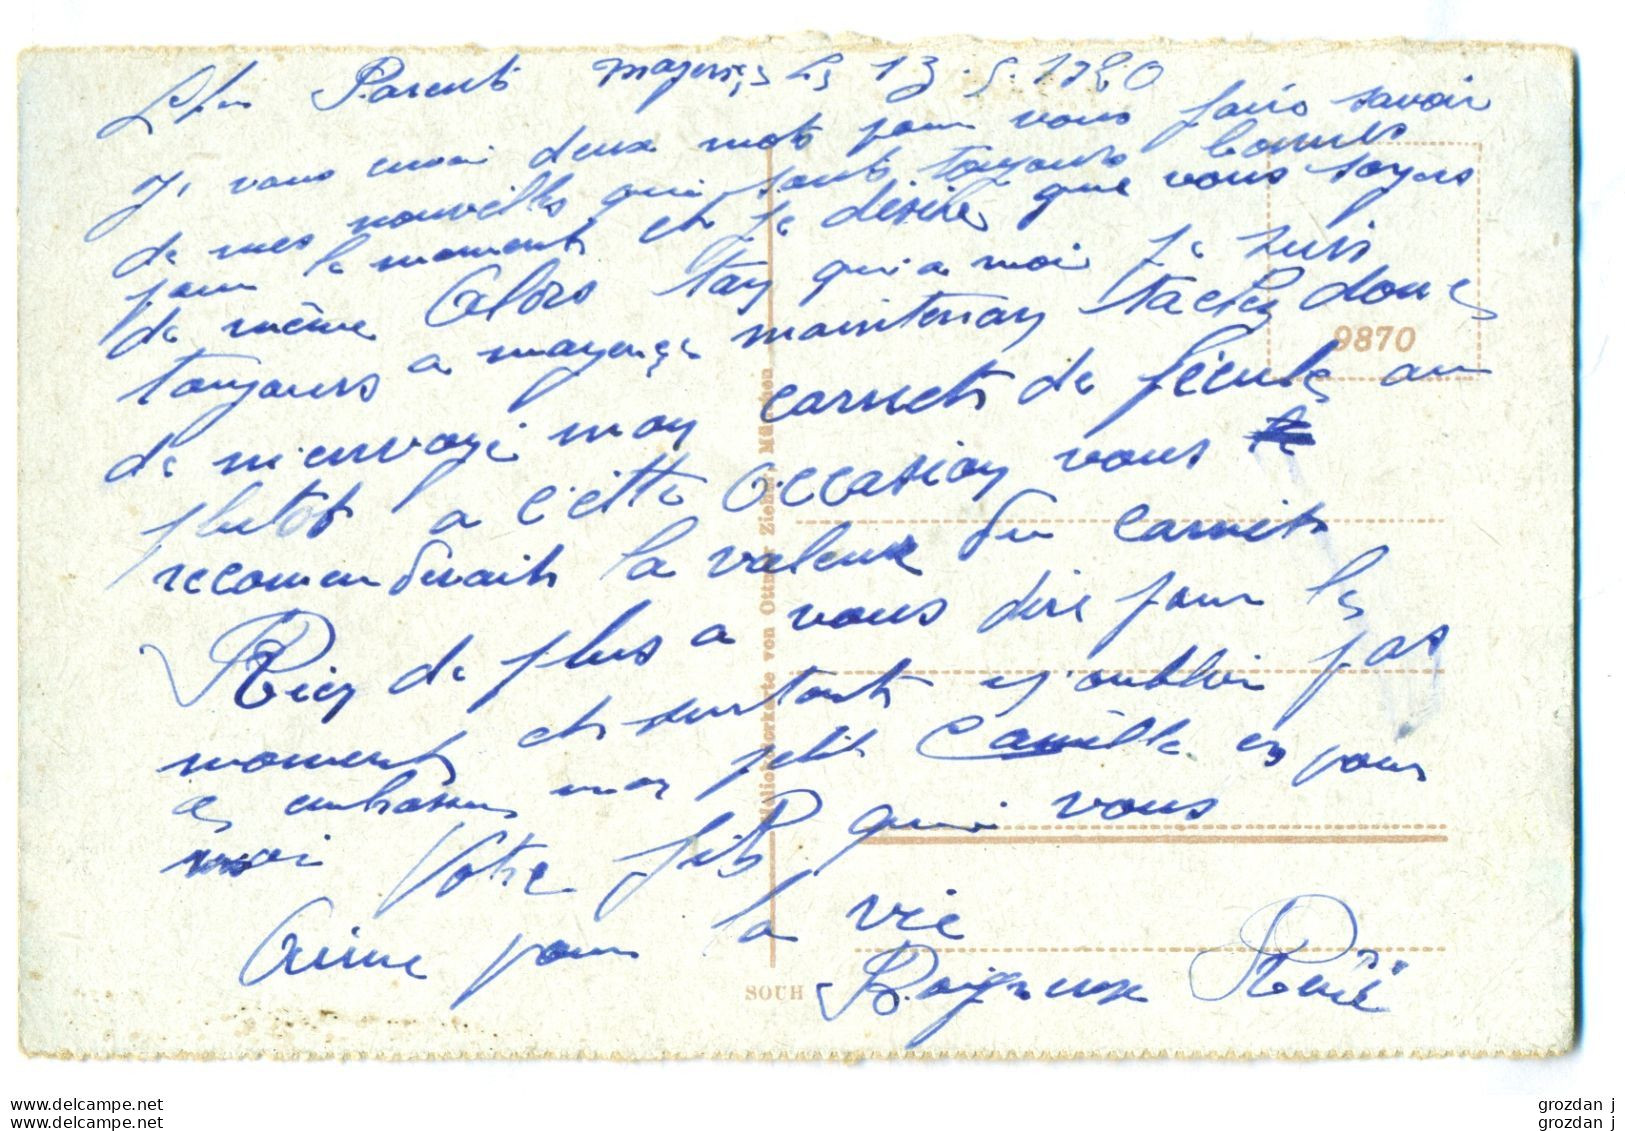 Parents mayence le 13.5.1920
Je vous envoi deux mots pour vous fairs savoir
de mes nouvelles qui sont toujours bonnes
pour le moment et je désire que vous soyers
de même Alors tan qui a moi je suis
toujours a mayence maintenan tachez donc
de m'envoyé mon carnets de fécule au
plutot a cette occasion vous
recomenderait la valeur du carnets
Rien de plus a vous dire pour le
moment et surtout n'oublier pas
embrasser mon petit Camille en pour
moi Votre fils qui vous
aime pour la vie
Boigneux Réné
9870
München
SOUH
www.delcampe.net
www.delcampe.net
grozdan j
grozdan j